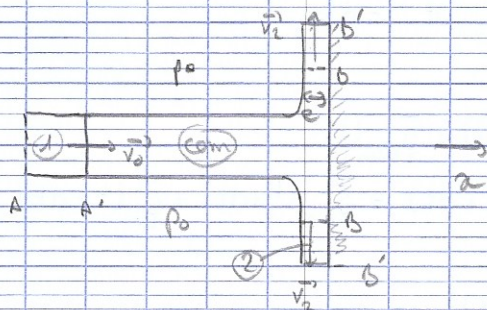 v₂ B'
p₀ B
e
① v₀ com x
A A' p₀ B
② B'
v₂